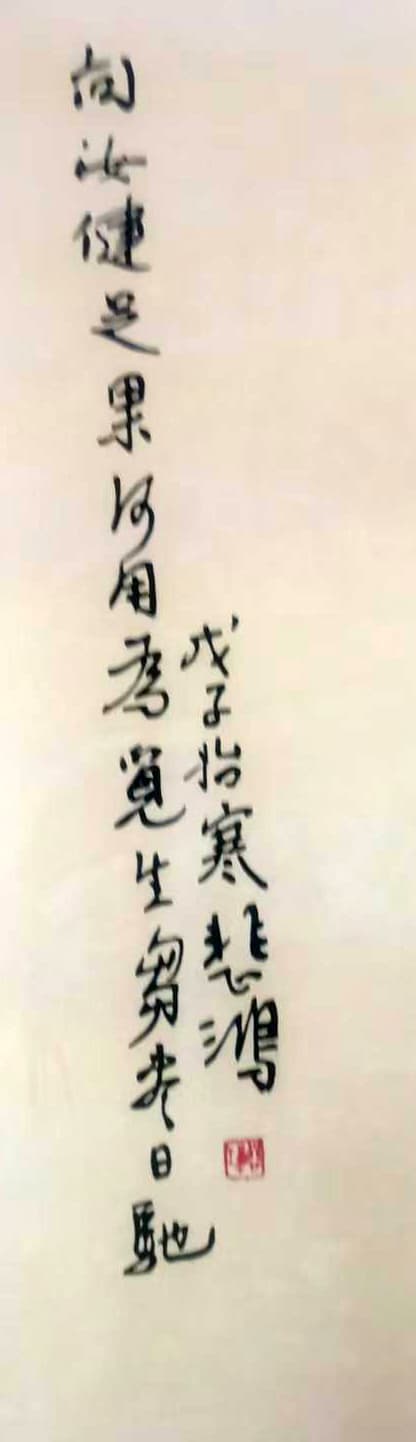 问汝健足果何用為覓生芻尽日馳
戊子始寒悲鴻